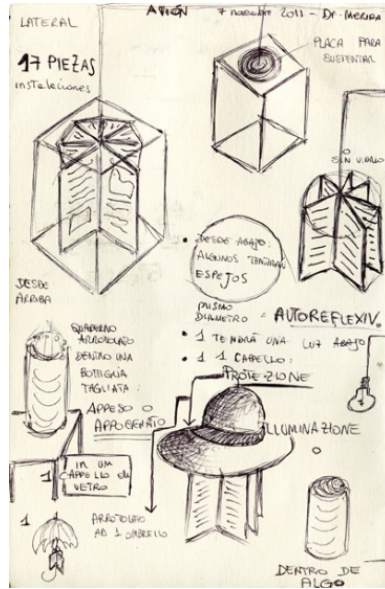 LATERAL
AVIÓN 7 noviembre 2011 - DF-MERIDA
17 PIEZAS
instalaciones
PLACA PARA
SUSTENTAR
O
SIN VIDRIO
• DESDE ABAJO:
ALGUNOS TENDRAN
ESPEJOS
DESDE
ARRIBA
MISMO
DIAMETRO = AUTOREFLEXIV.
• 1 TENDRÁ UNA LUZ ABAJO
• 1 1 CAPELLO:
PROTEZIONE
QUADERNO
ARROTOLATO
DENTRO UNA
BOTTIGLIA
TAGLIATA:
APPESO O
APPOGGIATO
ILLUMINAZIONE
1 IN UM
CAPPELLO di
VETRO
1 ARROTOLATO
AD 1 OMBRELLO
DENTRO DE
ALGO